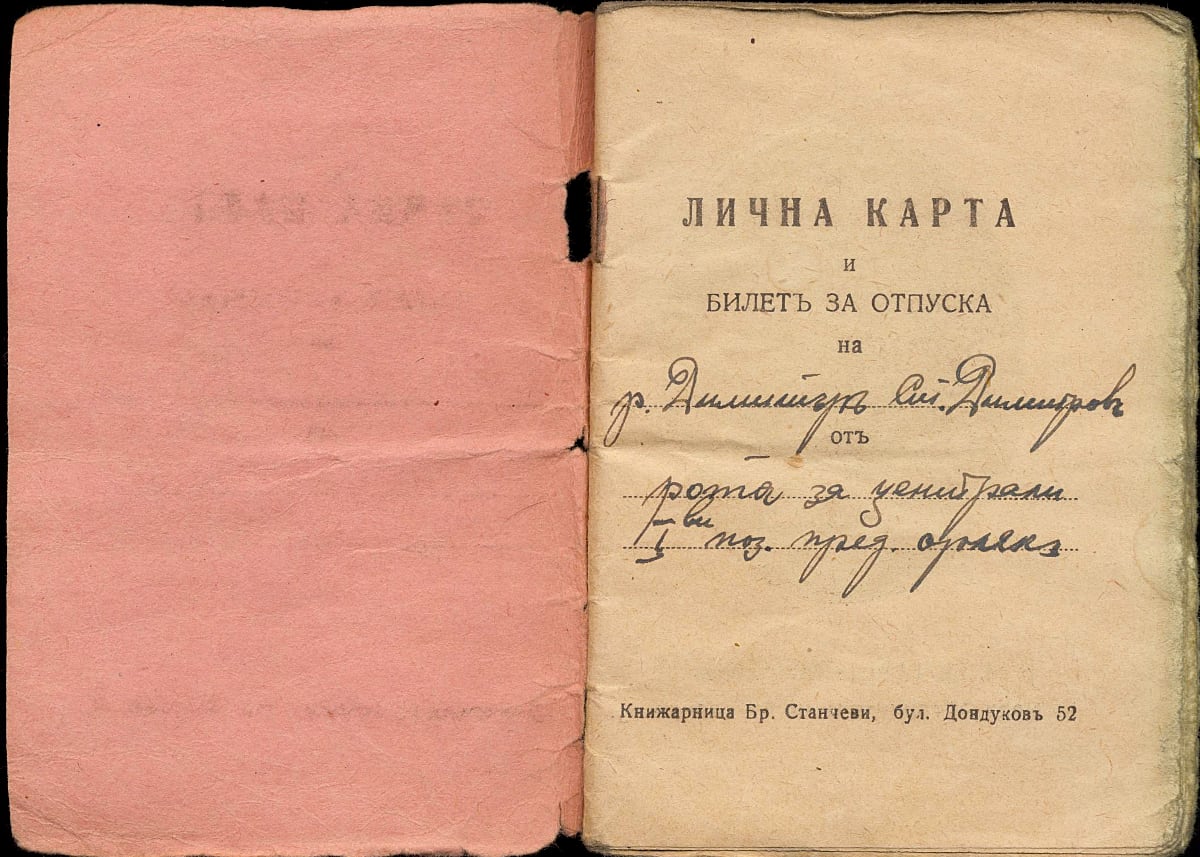 ЛИЧНА КАРТА
и
БИЛЕТЪ ЗА ОТПУСКА
на
р. Димитъръ Ст. Димитровъ
отъ
рота за централи
I ви поз. пред.
Книжарница Бр. Станчеви, бул. Дондуковъ 52